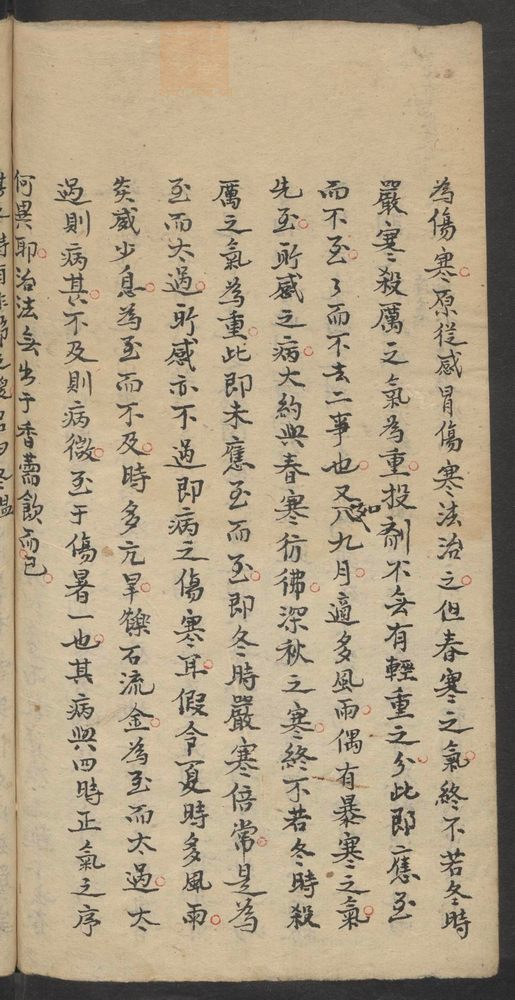 為傷寒原從感冒傷寒法治之但春寒之氣終不若冬時
嚴寒殺厲之氣為重投劑不無有輕重之分此即應至
而不至了而不去二事也又如八九月適多風雨偶有暴寒之氣
先至所感之病大約與春寒彷彿深秋之寒終不若冬時殺
厲之氣為重此即未應至而至即冬時嚴寒倍常是為
至而太過所感亦不過即病之傷寒耳假令夏時多風雨
炎威少息為至而不及時多亢旱鑠石流金為至而太過太
過則病甚不及則病微至于傷暑一也其病與四時正氣之序
何異耶治法無出于香薷飲而已